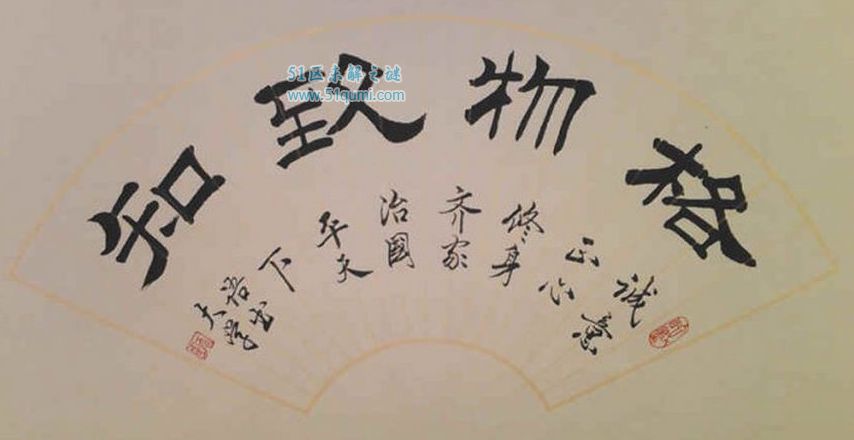 格物致知
诚意
正心
修身
齐家
治國
平天
下
语出
大学
51区未解之谜
www.51qumi.com